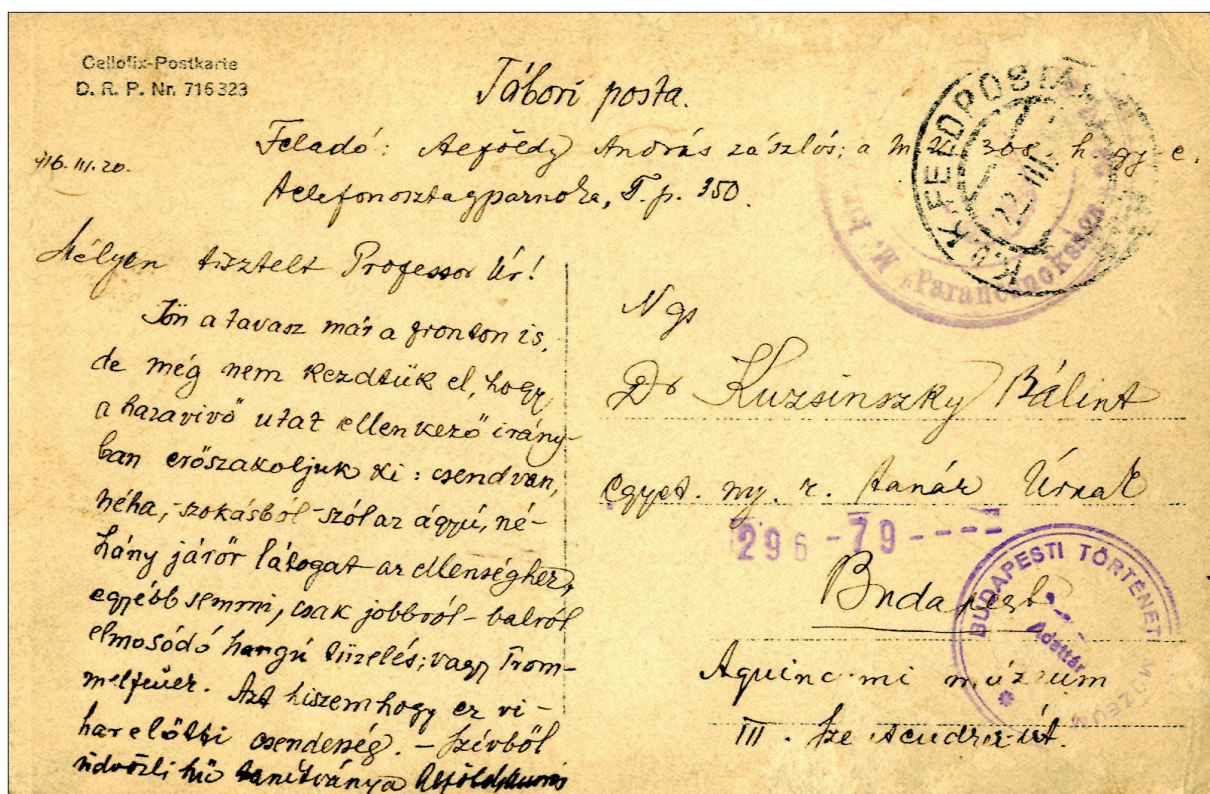 Cellofix-Postkarte
D. R. P. Nr. 716323
Tábori posta.
K.u.K. FELDPOSTAMT
916. III. 20.
Feladó: Alföldy András zászlós; a m. kir. 308 h. gy. e.
telefonosztagparnoka, T. p. 350.
M. kir. Parancsnokság
22 III
Mélyen tisztelt Professor Úr!
Jön a tavasz már a fronton is,
de még nem kezdtük el, hogy
a hazavivő utat ellenkező irány-
ban erőszakoljuk ki: csend van,
néha, -szokásból- szól az ágyú, né-
hány járőr látogat az ellenséghez,
egyébb semmi, csak jobbról-balról
elmosódó hangú tüzelés; vagy Trom-
melfeuer. Azt hiszem hogy ez vi-
harelőtti csendesség. – Szívből
üdvözli hű tanítványa Alföldy András
Ngs
Dr Kuzsinszky Bálint
egyet. ny. r. tanár Úrnak
296-79----
Budapest
Aquincumi múzeum
III. Szentendrei út.
BUDAPESTI TÖRTÉNETI MÚZEUM
Adattár